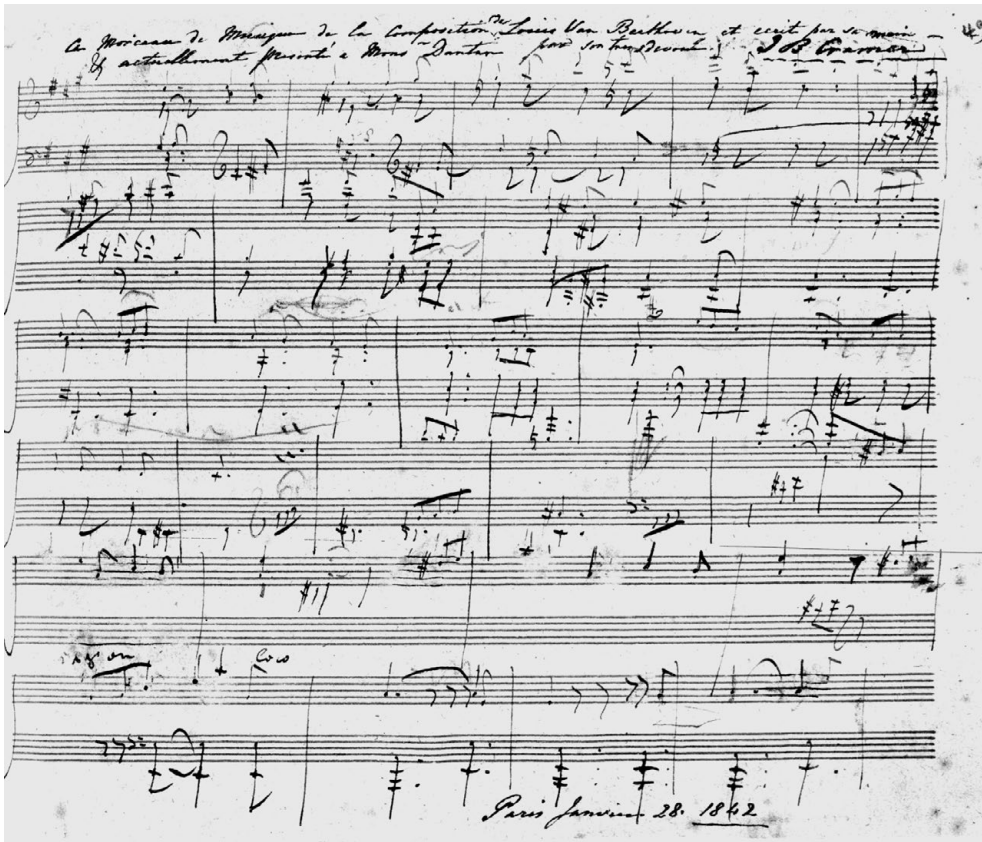 Ce Morceau de Musique de la Composition de Louis Van Beethoven et ecrit par sa main
Et actuellement presenté a Mons Dantan par son tres devoué J B Cramer
loco
Paris Janvier 28. 1842